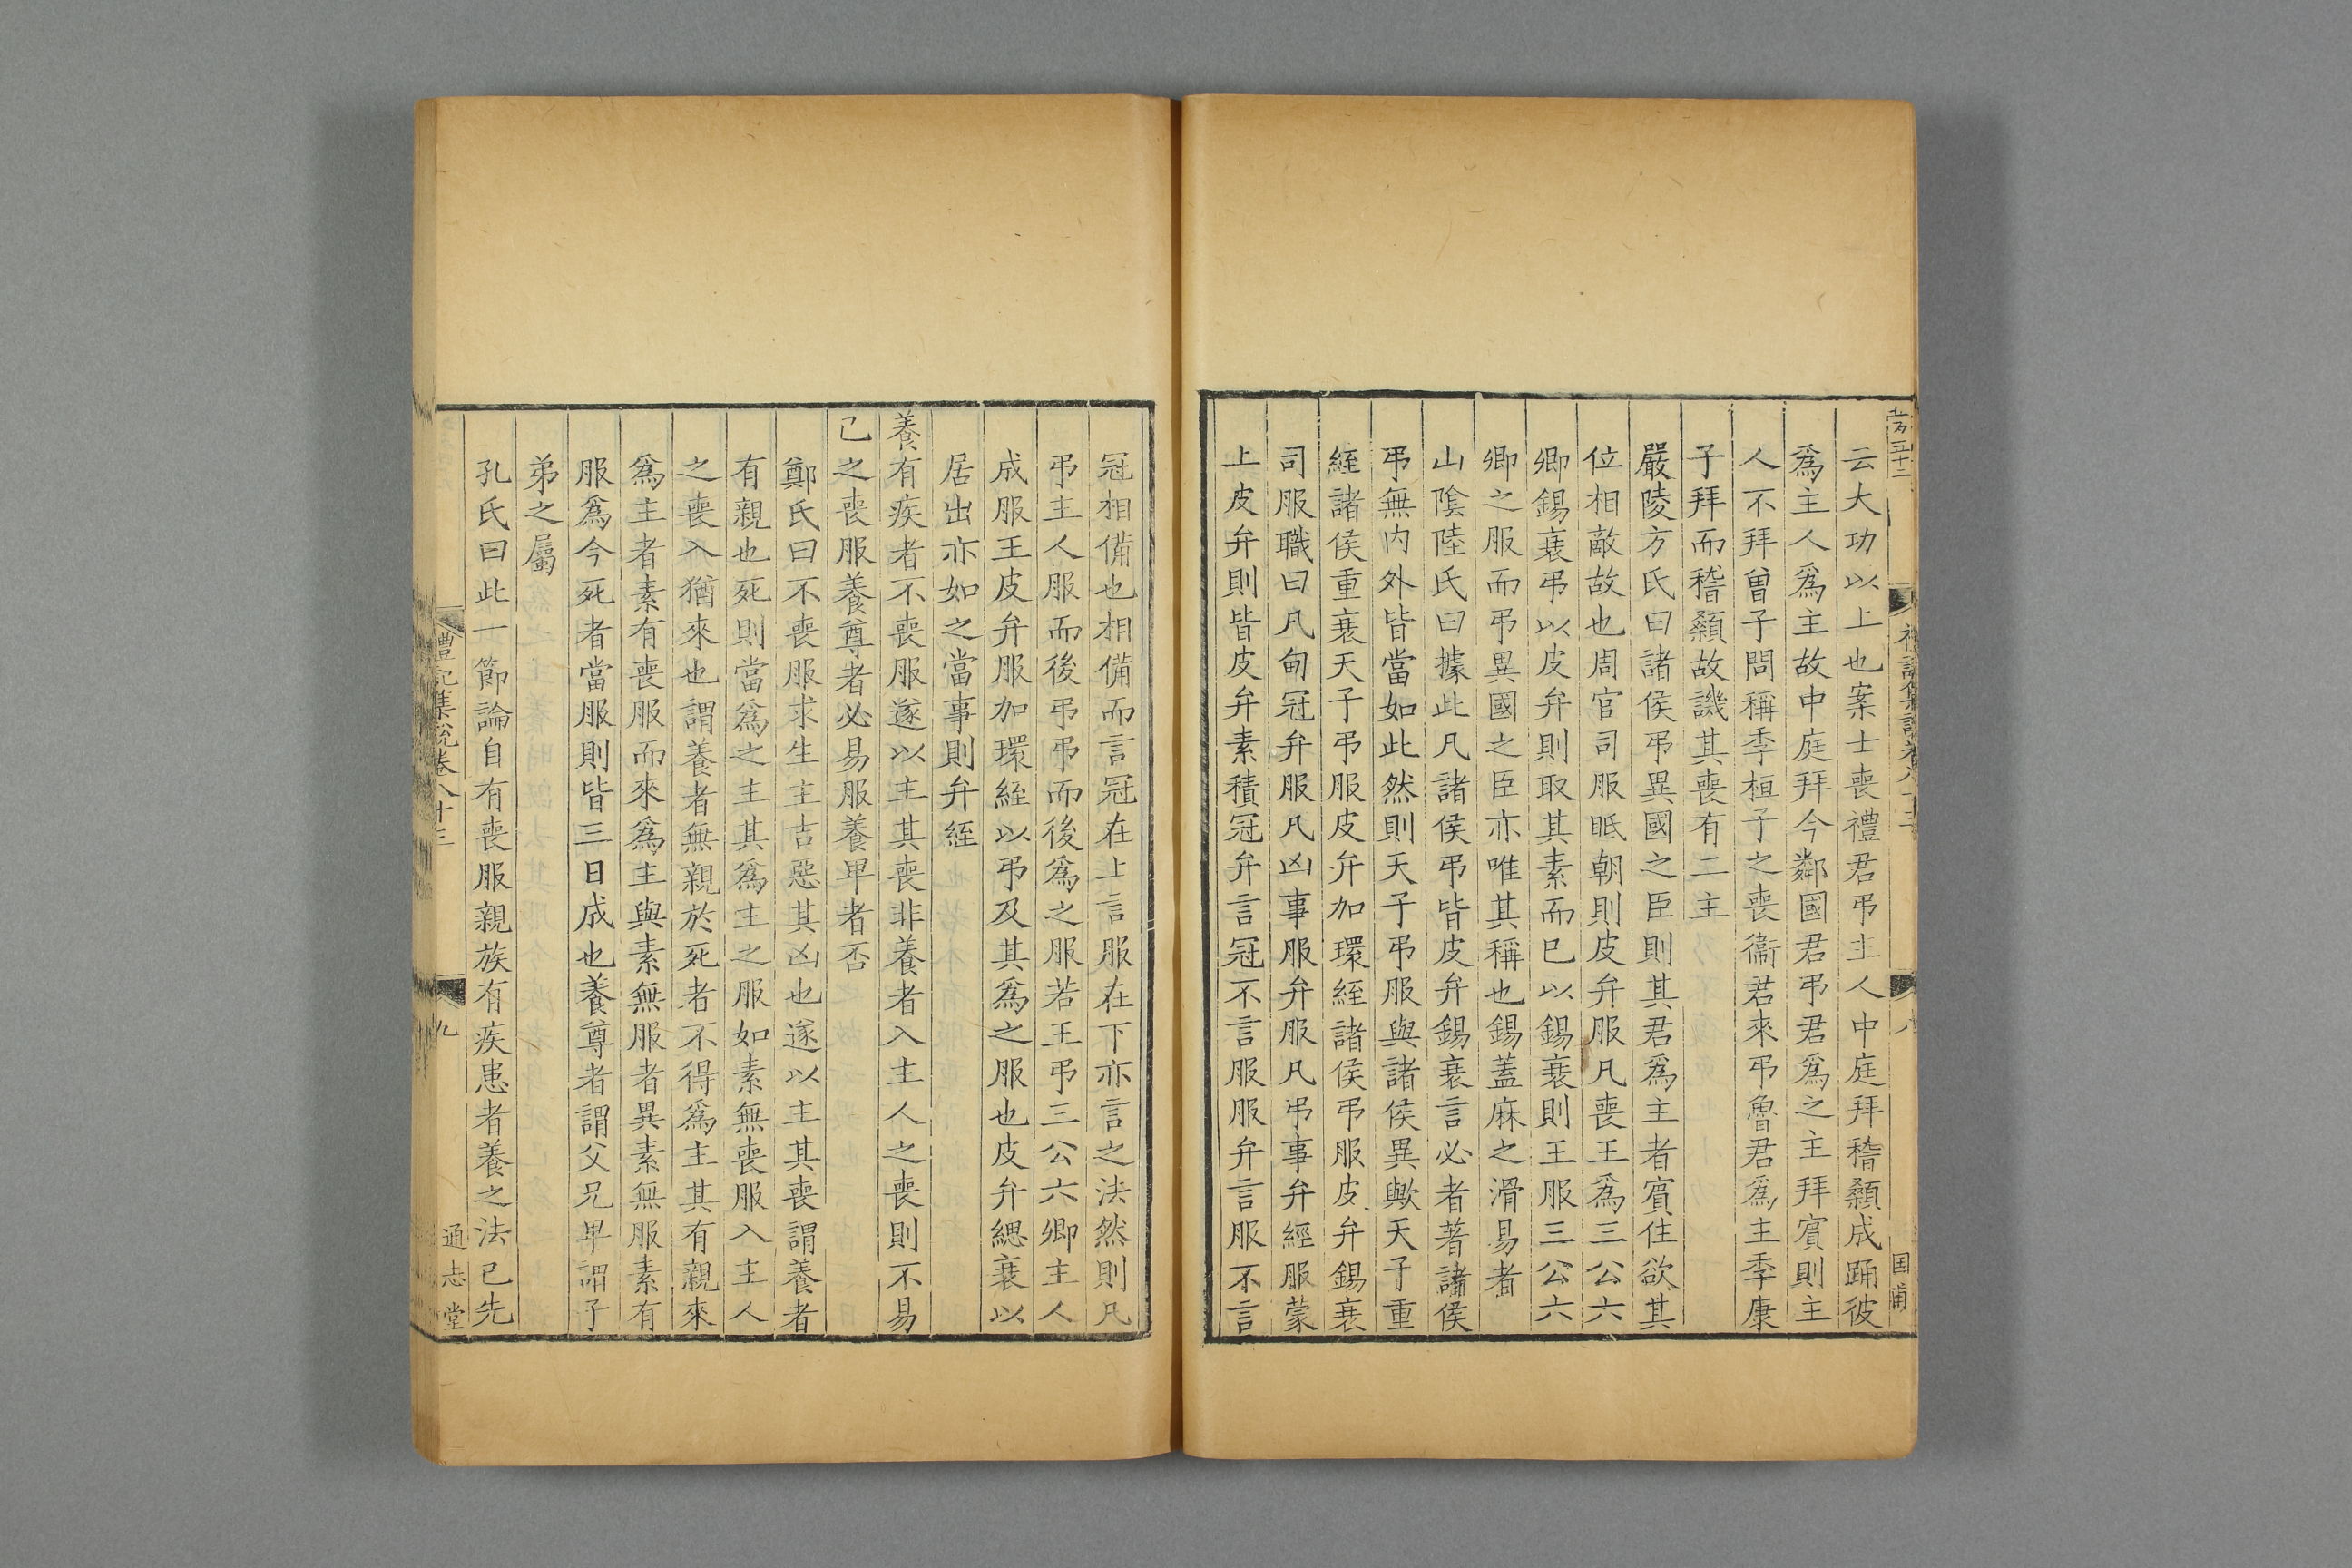 云大功以上也案士喪禮君弔主人中庭拜稽顙成踊彼
爲主人爲主故中庭拜今鄰國君弔君爲之主拜賔則主
人不拜曾子問稱季桓子之喪衞君來弔魯君爲主季康
子拜而稽顙故譏其喪有二主
嚴陵方氏曰諸侯弔異國之臣則其君爲主者賔住欲其
位相敵故也周官司服眡朝則皮弁服凡喪王爲三公六
卿錫衰弔以皮弁則取其素而已以錫衰則王服三公六
卿之服而弔異國之臣亦唯其稱也錫蓋麻之滑易者
山隂陸氏曰據此凡諸侯弔皆皮弁錫衰言必者著諸侯
弔無内外皆當如此然則天子弔服與諸侯異歟天子重
絰諸侯重衰天子弔服皮弁加環絰諸侯弔服皮弁錫衰
司服職曰凡甸冠弁服凡凶事服弁服凡弔事弁經服蒙
上皮弁則皆皮弁素積冠弁言冠不言服服弁言服不言
八
冠相備也相備而言冠在上言服在下亦言之法然則凡
弔主人服而後弔弔而後爲之服若王弔三公六卿主人
成服王皮弁服加環絰以弔及其爲之服也皮弁緦衰以
居出亦如之當事則弁絰
養有疾者不喪服遂以主其喪非養者入主人之喪則不易
己之喪服養尊者必易服養卑者否
鄭氏曰不喪服求生主吉惡其凶也遂以主其喪謂養者
有親也死則當爲之主其爲主之服如素無喪服入主人
之喪入猶來也謂養者無親於死者不得爲主其有親來
爲主者素有喪服而來爲主與素無服者異素無服素有
服爲今死者當服則皆三日成也養尊者謂父兄卑謂子
弟之屬
孔氏曰此一節論自有喪服親族有疾患者養之法已先
禮記集説卷八十三
九
通志堂